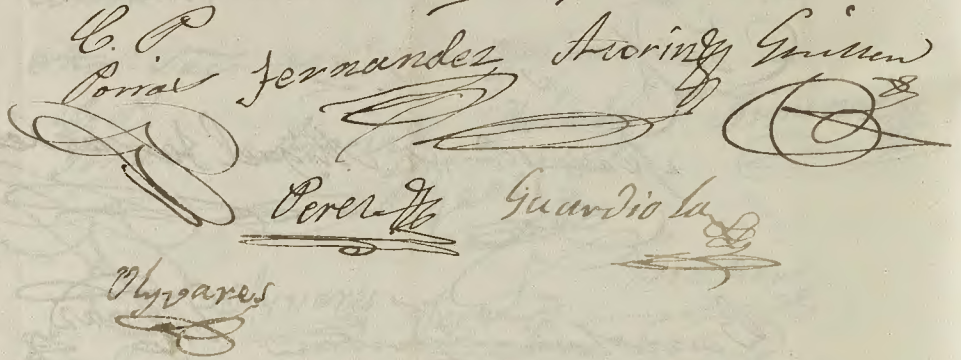 C. P
Porras Fernandez Azorin Guillen
Perez Guardiola
Olyvares